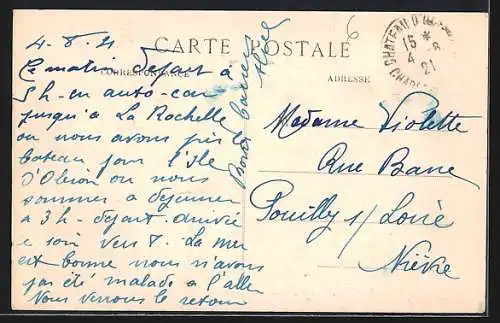 CARTE POSTALE
CORRESPONDANCE
ADRESSE
6
4.8.21
Ce matin départ à
5h - en auto-car
jusqu'à La Rochelle
ou nous avons pris
bateau pour l'Ile
d'Oléron ou nous
sommes a dejeuner
a 3h - départ arrivée
ce soir vers 8. La mer
est bonne nous n'avons
pas été malade a l'aller
Nous verrons le retour
Bons baisers
CHATEAU D'OL
15 *
4 - 8
21
Madame Violette
Rue Bane
Pouilly s/ Loire
Nièvre